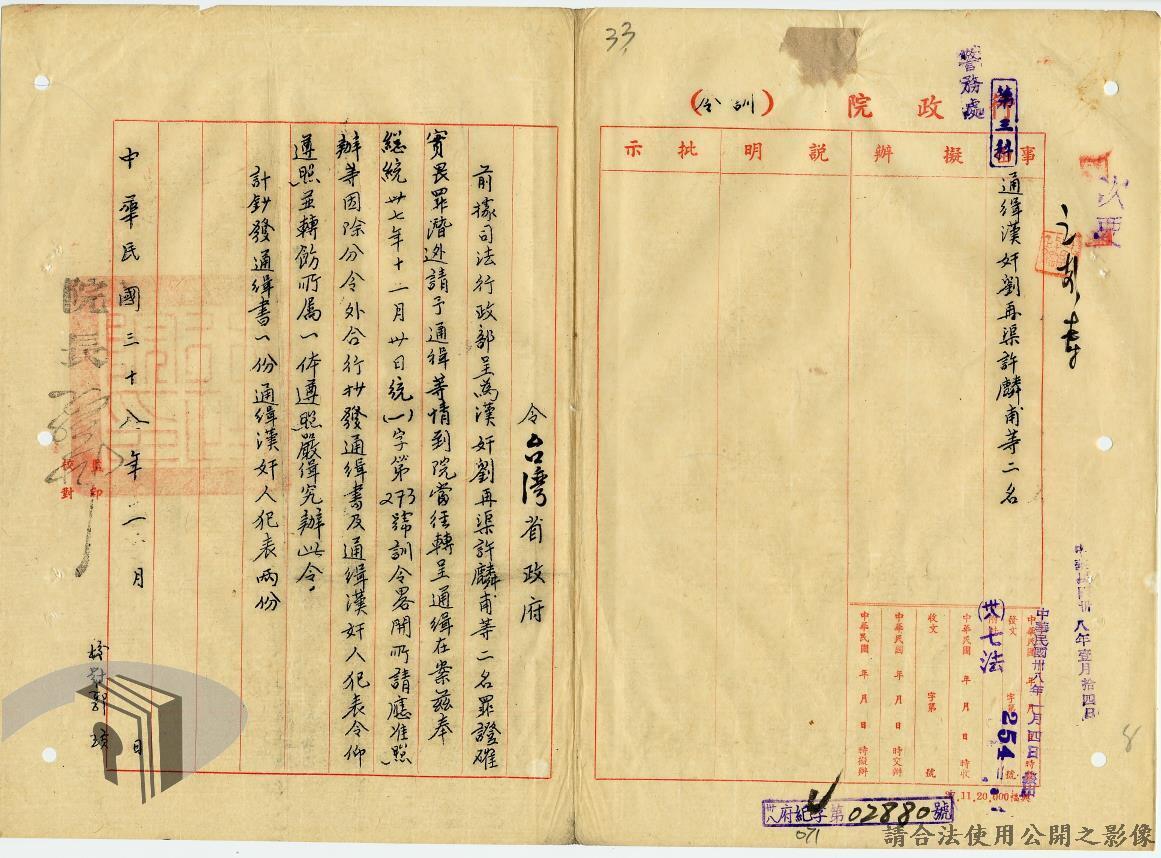 33
警務處
第三科
行政院（訓令）
事由
擬辦
説明
批示
次要
通緝漢奸劉再渠許麟甫等二名
中華民國卅八年壹月拾四日
中華民國卅八年一月四日
發文
字第
號
(卅)七法
254
中華民國 年 月 日 時收
收文 字第 號
中華民國 年 月 日 時交辦
中華民國 年 月 日 時擬辦
37.11.20,000
卅八府紀字第02880號
071
8
令台灣省政府
前據司法行政部呈為漢奸劉再渠許麟甫等二名罪證確
實畏罪潛逃請予通緝等情到院當經轉呈通緝在案茲奉
總統卅七年十二月卅日統(一)字第273號訓令畧開所請應准照
辦等因除分令外合行抄發通緝書及通緝漢奸人犯表令仰
遵照並轉飭所属一体遵照嚴緝究辦此令。
計鈔發通緝書一份通緝漢奸人犯表兩份
中華民國三十八年一月 日
院長
監印
校對
請合法使用公開之影像